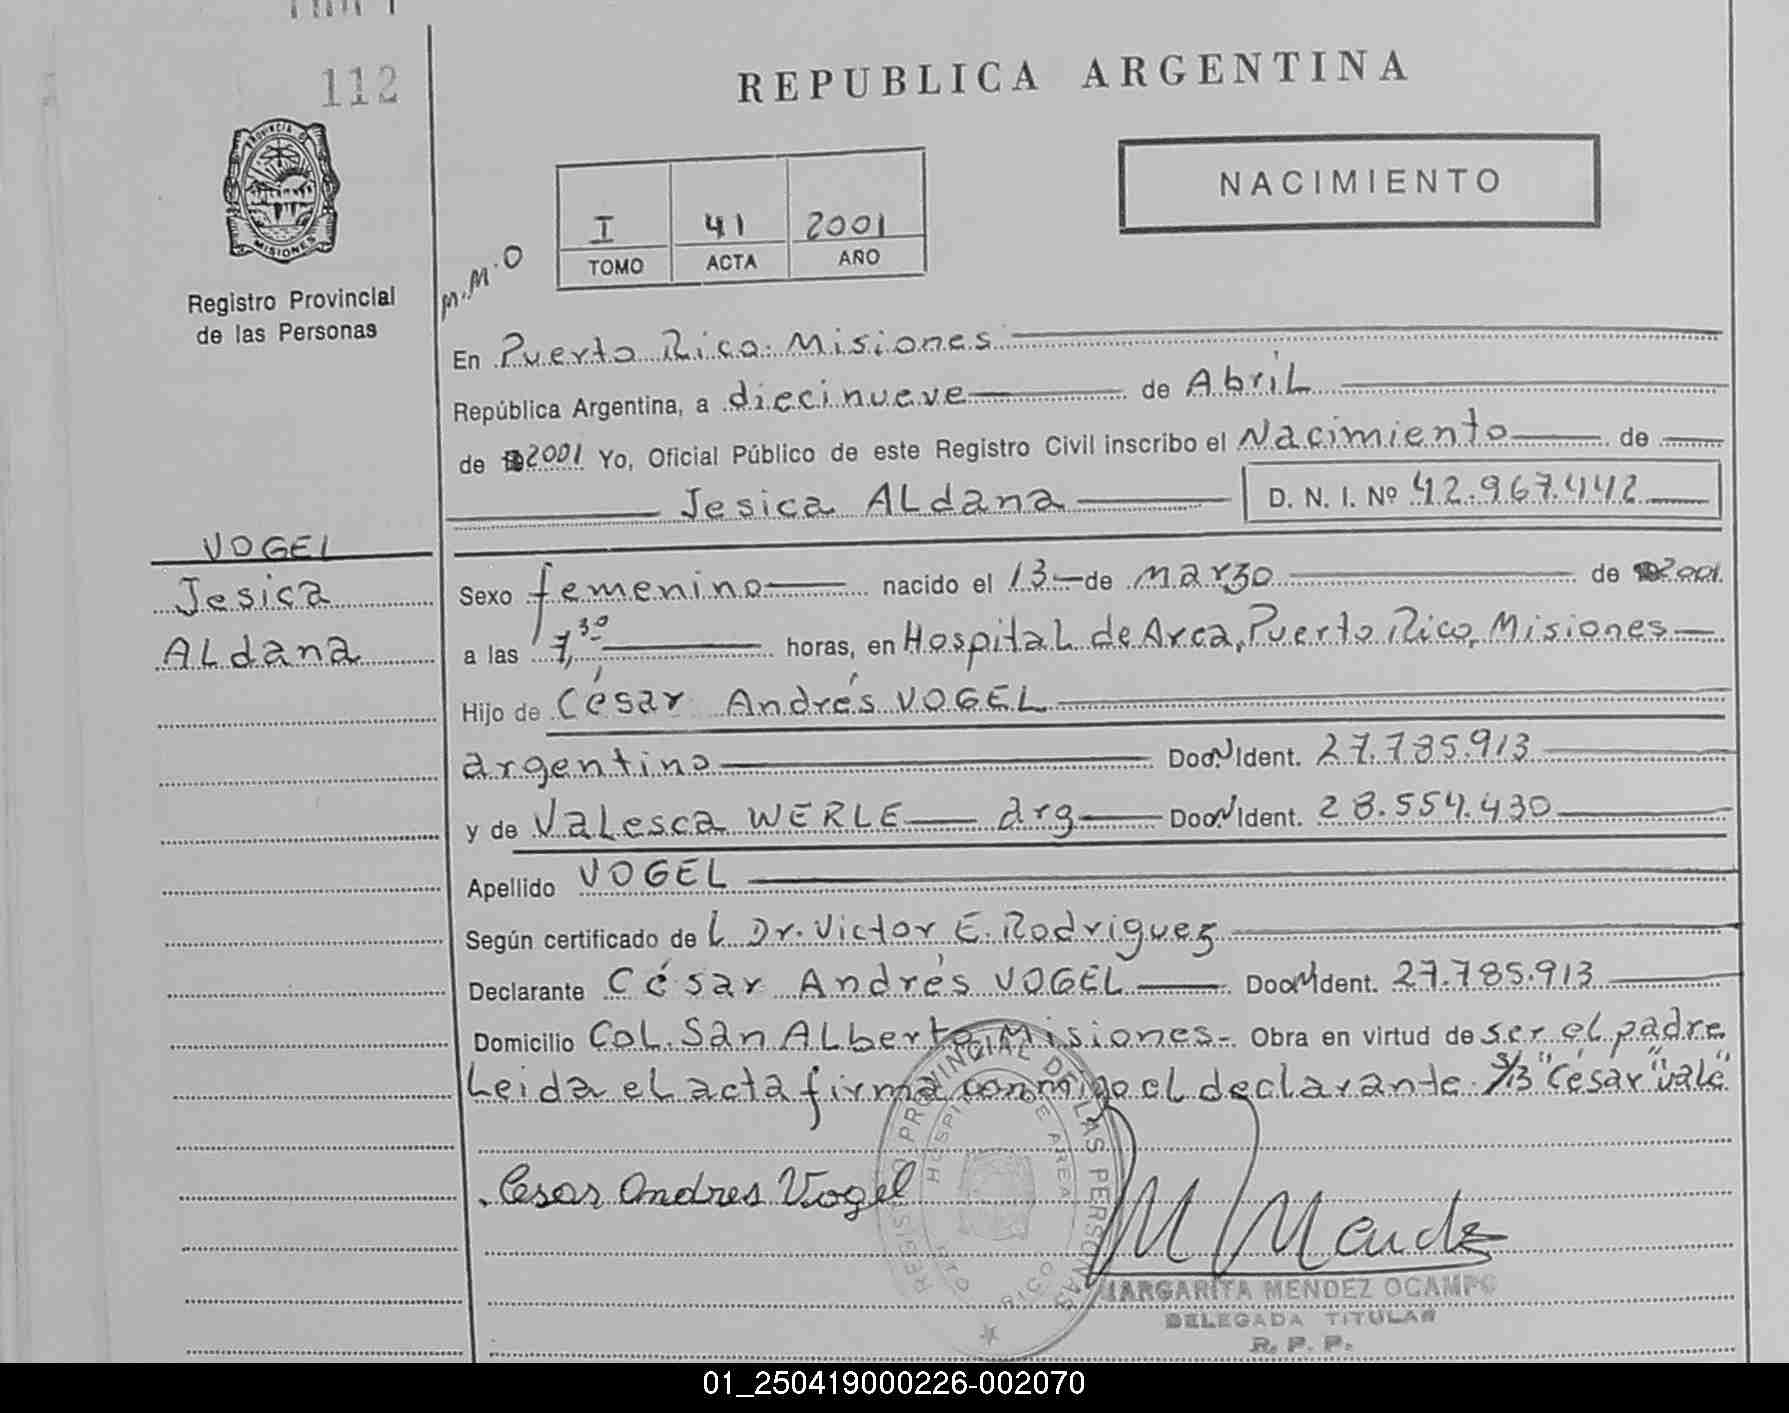 112
REPUBLICA ARGENTINA
NACIMIENTO
PROVINCIA DE
MISIONES
I 41 2001
TOMO ACTA AÑO
M.M.O
Registro Provincial
de las Personas
En Puerto Rico. Misiones
República Argentina, a diecinueve de Abril
de 2001 Yo, Oficial Público de este Registro Civil inscribo el Nacimiento de
Jesica ALdana D. N. I. Nº 42.967.442
VOGEL
Jesica
ALdana
Sexo femenino nacido el 13 de Marzo de 2001
a las 7,30 horas, en HospitaL de Area, Puerto Rico, Misiones
Hijo de César Andrés VOGEL
argentino Doc. N Ident. 27.785.913
y de VaLesca WERLE arg Doc. N Ident. 28.554.430
Apellido VOGEL
Según certificado de L Dr. Victor E. Rodriguez
Declarante César Andrés VOGEL Doc. N Ident. 27.785.913
Domicilio CoL. San ALberto Misiones. Obra en virtud de ser el padre
Leida el acta firma conmigo el declarante. S/B "César" "vale"
Cesar Andres Vogel
REGISTRO PROVINCIAL DE LAS PERSONAS
HOSPITAL DE AREA
PTO RICO
M Mendez
MARGARITA MENDEZ OCAMPO
DELEGADA TITULAR
R. P. P.
01_250419000226-002070